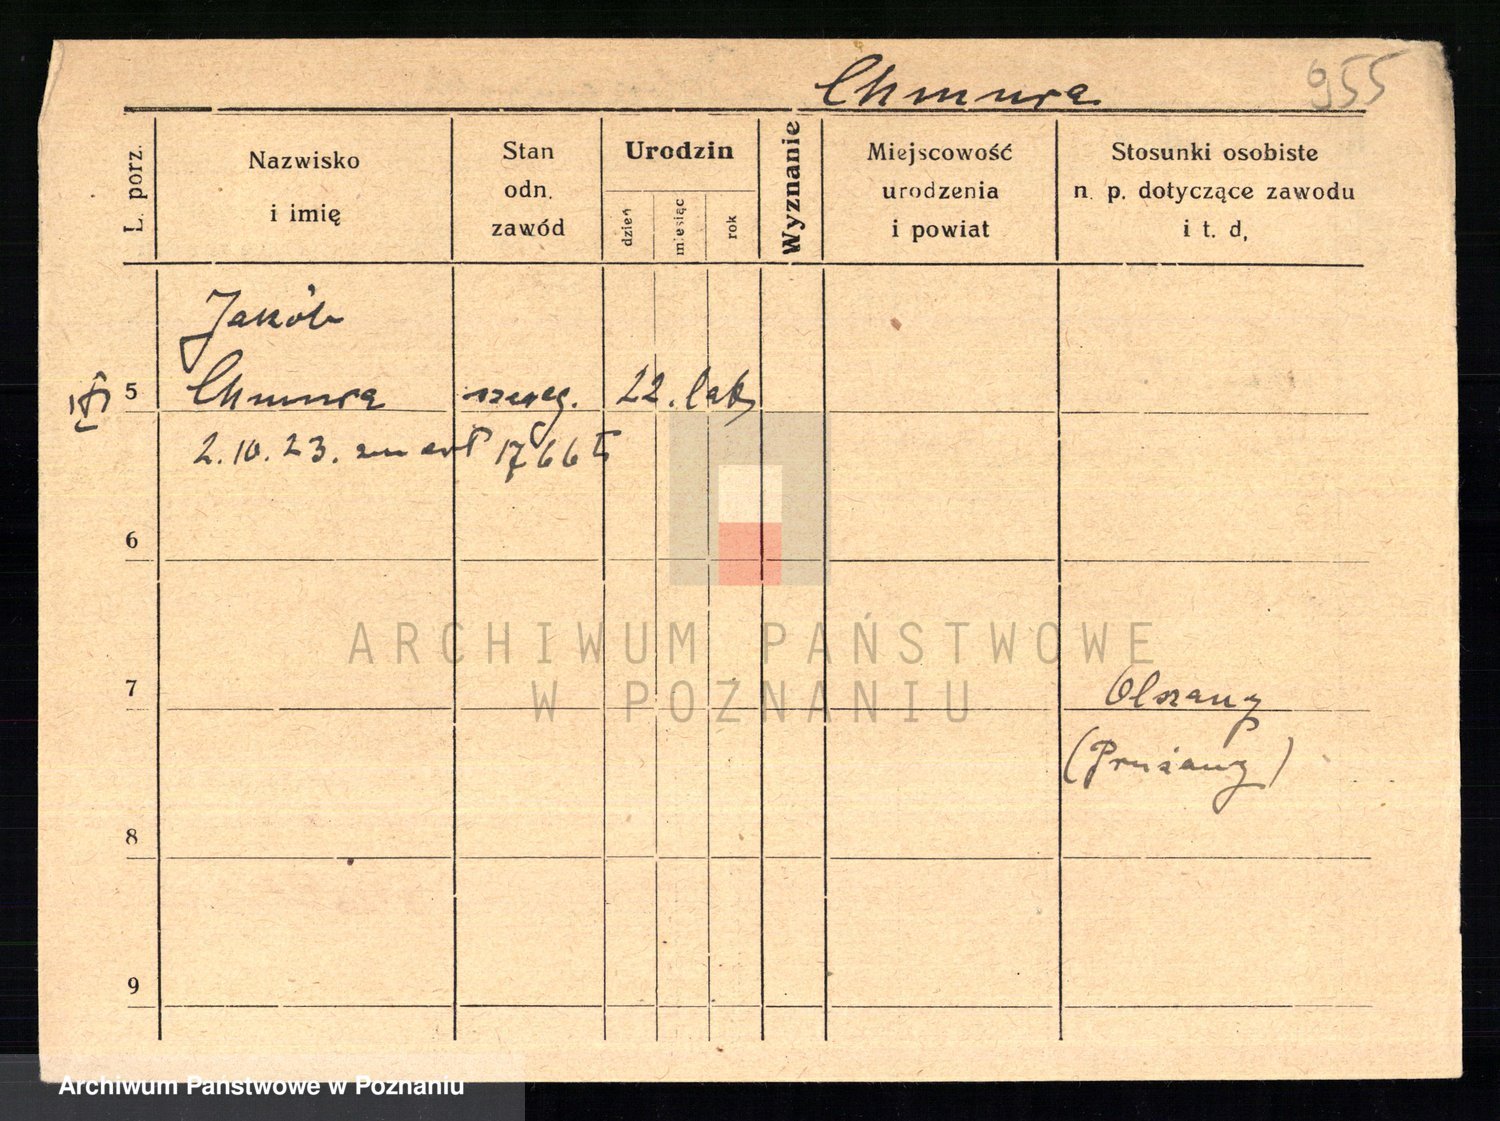 Chmura
955
L. porz.
Nazwisko
i imię
Stan
odn.
zawód
Urodzin
dzień
miesiąc
rok
Wyznanie
Miejscowość
urodzenia
i powiat
Stosunki osobiste
n. p. dotyczące zawodu
i t. d,
Jakób
5 Chmura szereg. 22. lat
2.10.23. zmarł
6
ARCHIWUM PAŃSTWOWE
W POZNANIU
7 Olszany
(Prużany)
8
9
Archiwum Państwowe w Poznaniu